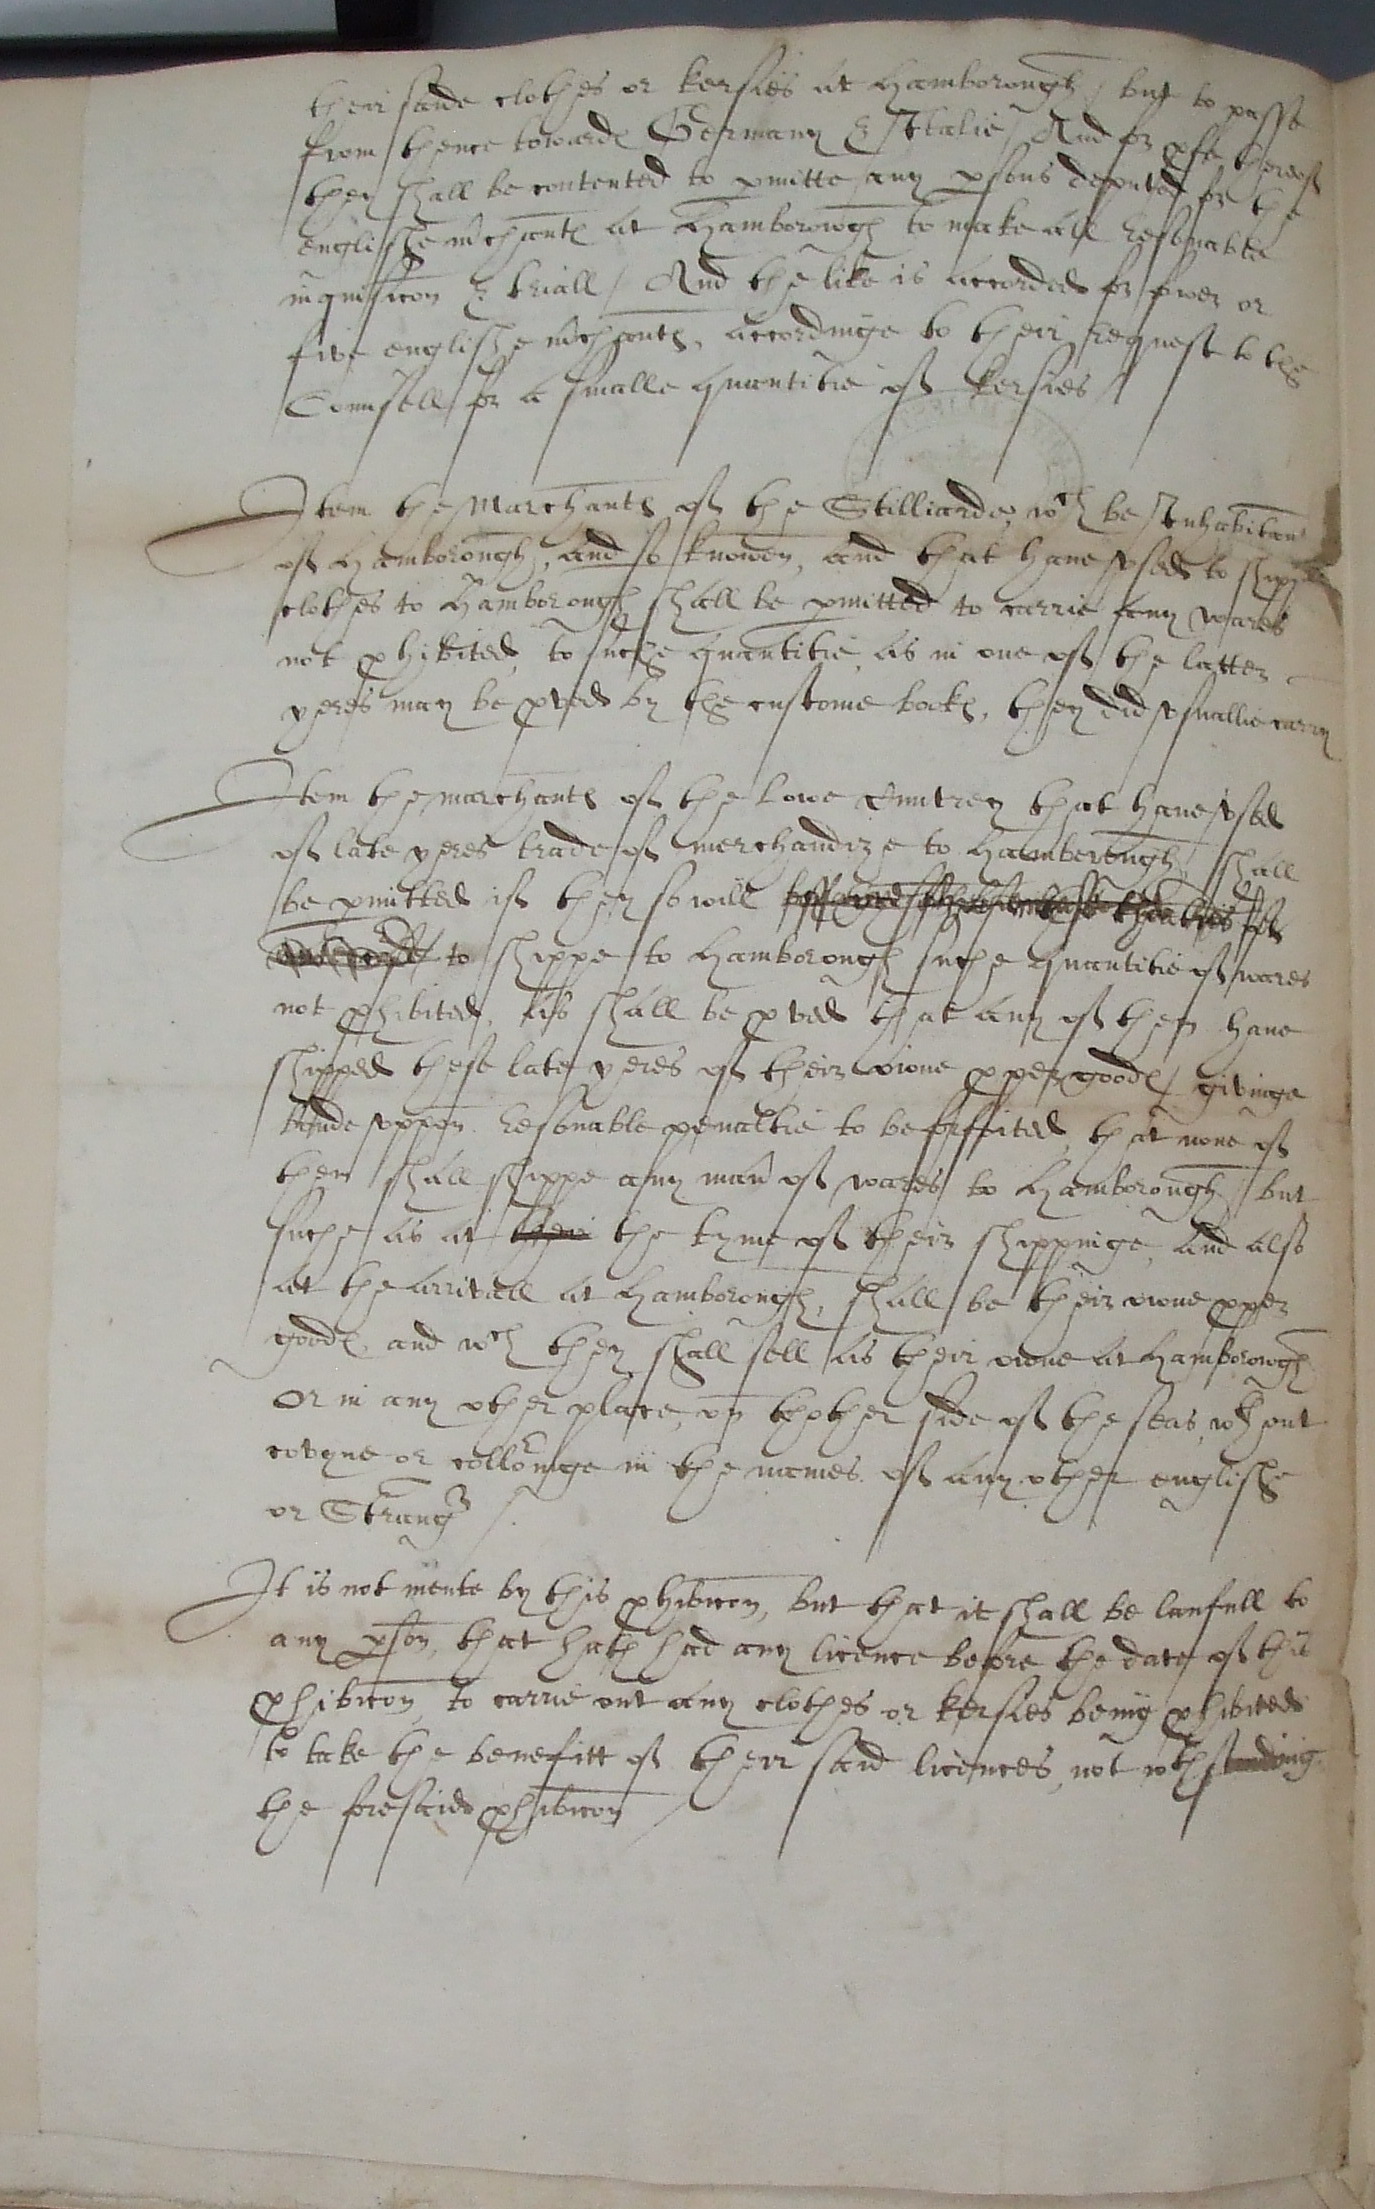 their saide clothes or kersies at Hamborough / but to passe
from thence towards Germany & Italie / And for pfe thereof
they shall be contented to pmitte any psons deputed for the
englishe mchants at Hamborowgh to make all resonable
inquisicon & triall / And the like is accorded for fower or
five englishe mchants, accordinge to their request to the
Counsell for a smalle quantitie of kersies /
Item the Marchants of the Stilliarde, wch be Inhabitan
of Hamborough, and so knowen, and that have vsed to shipp
clothes to Hamborough shall be pmitted to carrie any wares
not phibited, to suche quantitie, as in one of the latter
yeres may be pved by the custome books, they did vsuallie carry
Item the marchants of the lowe Cuntrey that have vsed
of late yeres trade of merchandize to Hamberough, shall
be pmitted if they so will
to shippe to Hamborough suche quantitie of wares
not phibited, as shall be pved that any of them have
shipped these late yeres of their owne pper goods / givinge
bande vppon resonable penaltie to be forfeited, that none of
them shall shippe any man of wares to Hamborough, but
suche as at their the tyme of their shippinge, and also
at the arrivall at Hamborough, shall be their owne pper
goods, and wch they shall sell as their owne at Hamborowgh
Or in any other place, on thother side of the seas, wthout
covyne or collouringe in the names of any other englishe
or Strang /
It is not mente by this phibicon, but that it shall be laufull to
any pson, that hath had any licence before the date of this
phibicon, to carrie out any clothes or kersies being phibited
to take the benefitt of their said licences, not wthstanding
the foresaid phibicon /